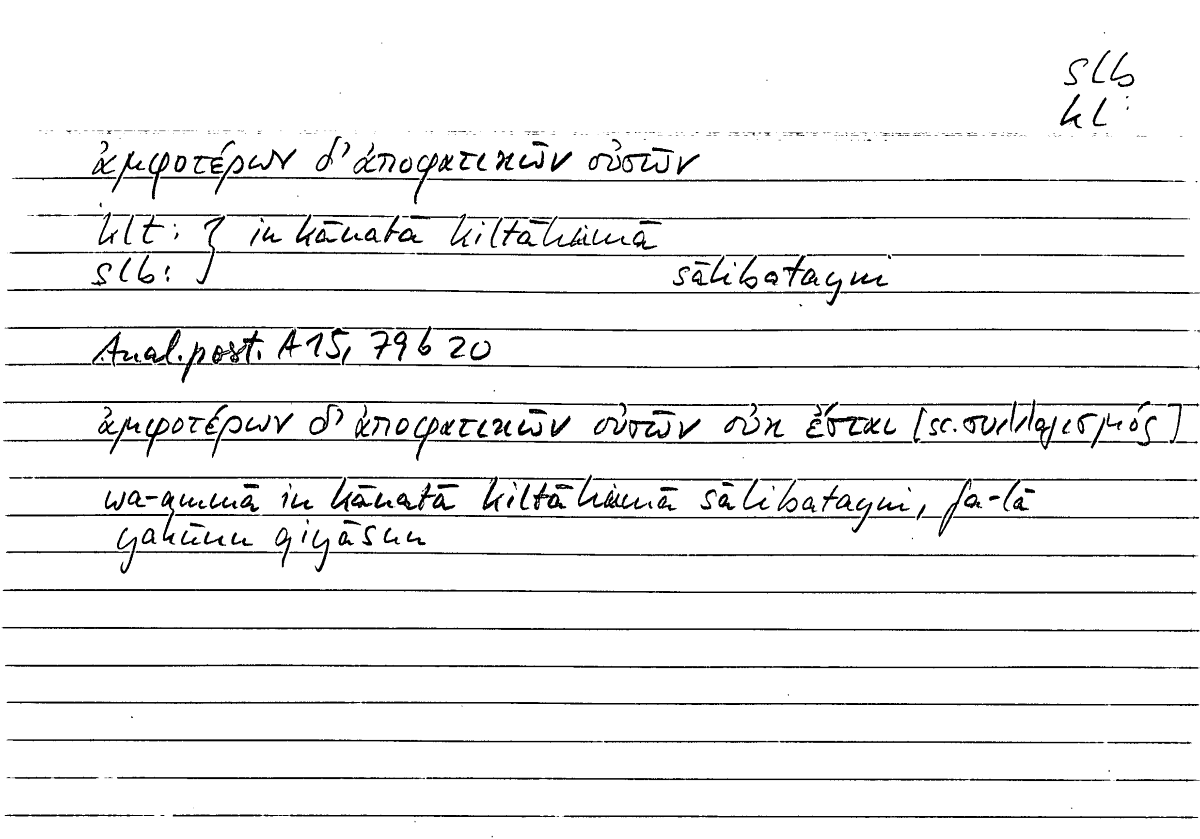 slb
kl:
ἀμφοτέρων δ' ἀποφατικῶν οὐσῶν
klt: } in kānatā kiltāhimā
slb: } sālibatayni
Anal.post. A 15, 79 b 20
ἀμφοτέρων δ' ἀποφατικῶν οὐσῶν οὐκ ἔσται [sc. συλλογισμός]
wa-ammā in kānatā kiltāhimā sālibatayni, fa-lā
yakūnu qiyāsun